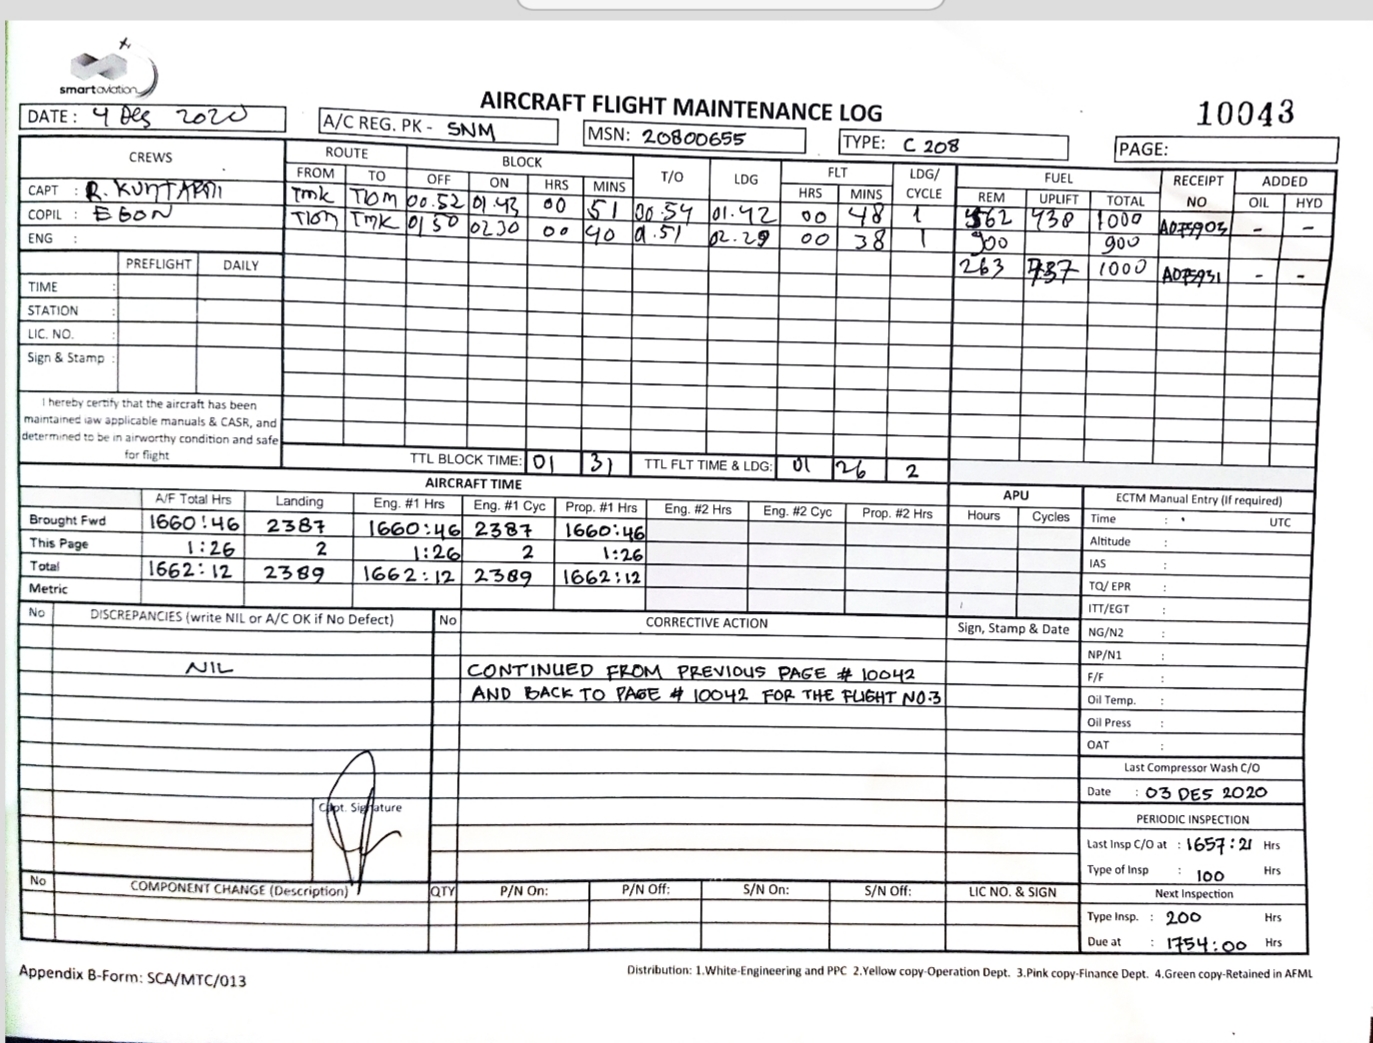 smartaviation
AIRCRAFT FLIGHT MAINTENANCE LOG
10043
DATE : 4 Des 2020
A/C REG. PK - SNM
MSN: 20800655
TYPE: C 208
PAGE:
CREWS ROUTE BLOCK T/O LDG FLT LDG/ CYCLE FUEL RECEIPT NO ADDED
FROM TO OFF ON HRS MINS HRS MINS REM UPLIFT TOTAL OIL HYD
CAPT : R. KUNTARDI TMK TIOM 00.52 01.43 00 51 00.54 01.42 00 48 1 562 438 1000 A075903 - -
COPIL : EGON TIOM TMK 0150 0230 00 40 01.51 02.29 00 38 1 900 900
ENG :
263 737 1000 A075931 - -
PREFLIGHT DAILY
TIME :
STATION :
LIC. NO. :
Sign & Stamp :
I hereby certify that the aircraft has been
maintained iaw applicable manuals & CASR, and
determined to be in airworthy condition and safe
for flight
TTL BLOCK TIME: 01 31 TTL FLT TIME & LDG: 01 26 2
AIRCRAFT TIME
A/F Total Hrs Landing Eng. #1 Hrs Eng. #1 Cyc Prop. #1 Hrs Eng. #2 Hrs Eng. #2 Cyc Prop. #2 Hrs
Brought Fwd 1660:46 2387 1660:46 2387 1660:46
This Page 1:26 2 1:26 2 1:26
Total 1662:12 2389 1662:12 2389 1662:12
Metric
APU
Hours Cycles
ECTM Manual Entry (If required)
Time : UTC
Altitude :
IAS :
TQ/ EPR :
ITT/EGT :
NG/N2 :
NP/N1 :
F/F :
Oil Temp. :
Oil Press :
OAT :
No DISCREPANCIES (write NIL or A/C OK if No Defect) No CORRECTIVE ACTION Sign, Stamp & Date
NIL
CONTINUED FROM PREVIOUS PAGE # 10042
AND BACK TO PAGE # 10042 FOR THE FLIGHT NO.3
Capt. Signature
Last Compressor Wash C/O
Date : 03 DES 2020
PERIODIC INSPECTION
Last Insp C/O at : 1657:21 Hrs
Type of Insp : 100 Hrs
Next Inspection
Type Insp. : 200 Hrs
Due at : 1754:00 Hrs
No COMPONENT CHANGE (Description) QTY P/N On: P/N Off: S/N On: S/N Off: LIC NO. & SIGN
Appendix B-Form: SCA/MTC/013
Distribution: 1.White-Engineering and PPC 2.Yellow copy-Operation Dept. 3.Pink copy-Finance Dept. 4.Green copy-Retained in AFML